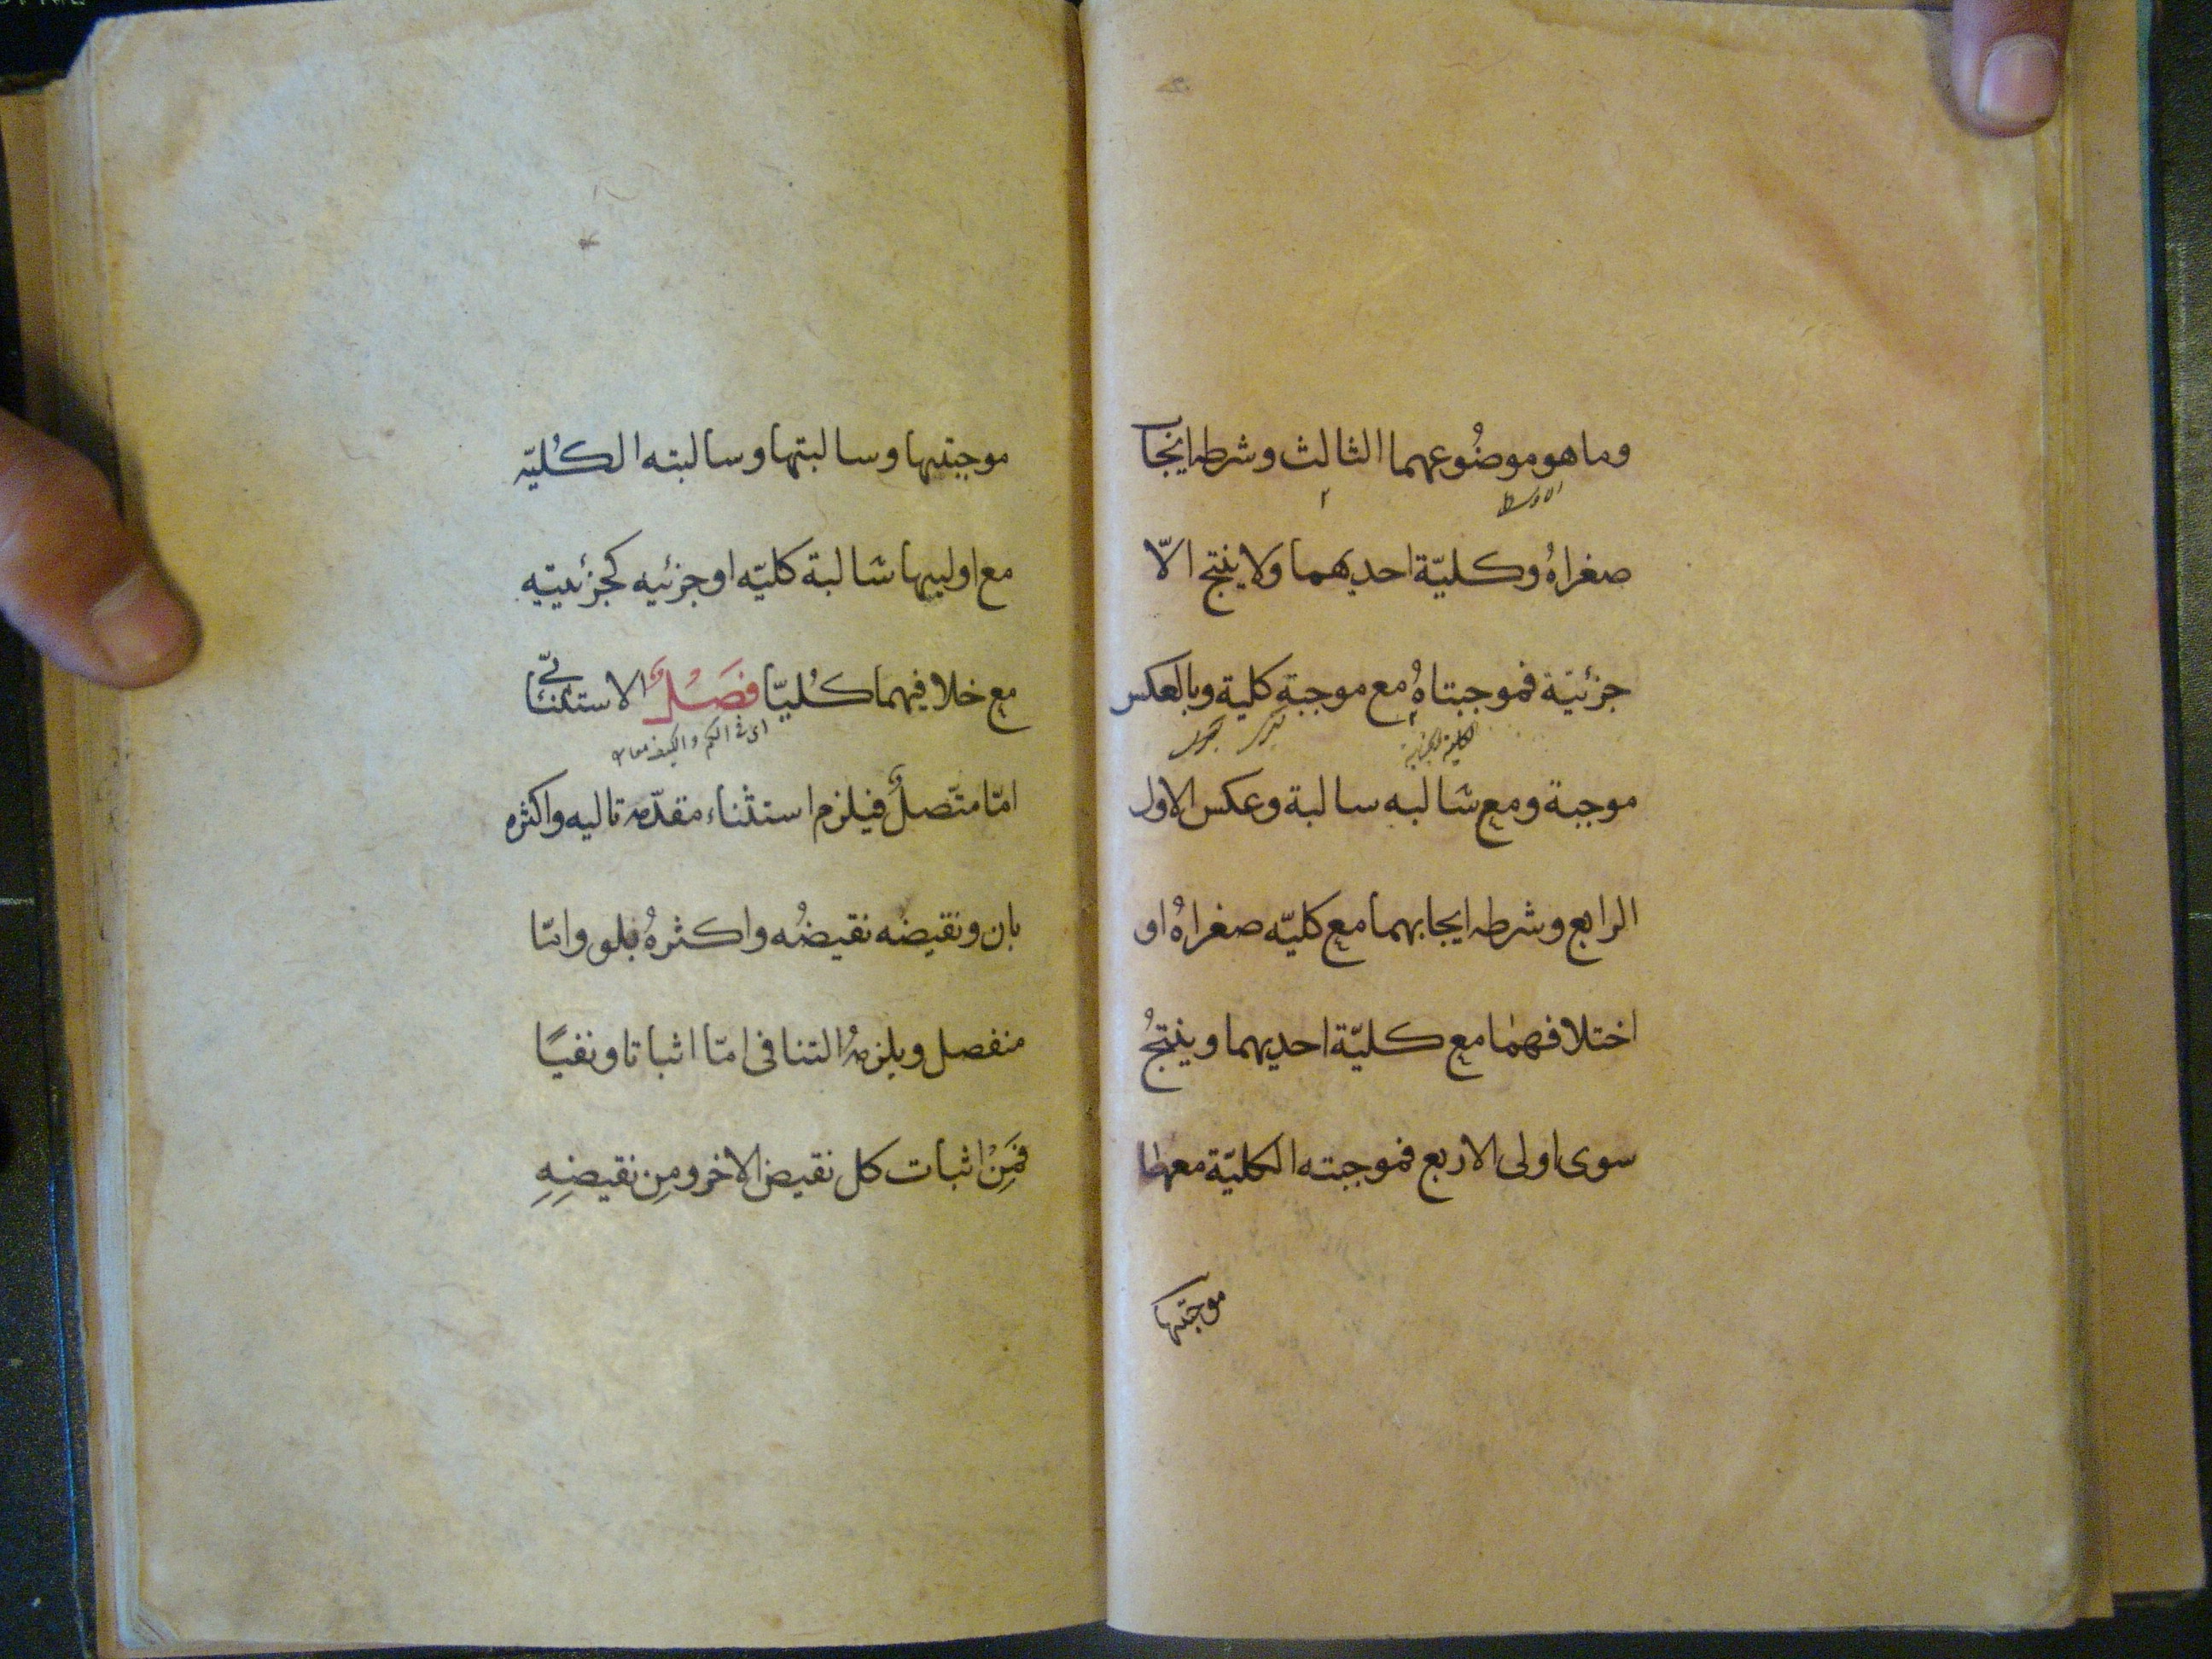 وما هو موضُوعهما الثالث وشرطه ايجا
الاوسط
صغراهُ وكليّة احديهما ولا ينتج الّا
جزئيّة فموجبتاهُ مع موجبة كلية وبالعكس
الكلية والجزئية
موجبة ومع سالبه سالبة وعكس الاول
الرابع وشرطه ايجابهما مع كليّه صغراهُ او
اختلافهما مع كليّة احديهما وينتجُ
سوى اولى الاربع فموجبته الكليّة معها
موجبتيها
موجبتيها وسالبتها وسالبته الكُليّه
مع اولييها سالبة كليّه او جزئيه كجزئييّه
مع خلافيهما كُليّا فصَلٌ الاستثنائىّ
اى فى الكم والكيف معا
امّا متّصلٌ فيلزم استثناء مقدّمه تاليه واكثره
بان ونقيضه نقيضُه واكثرهُ بلو وامّا
منفصل ويلزمهُ التنافى امّا اثباتا ونفيًا
فَمِنْ اثبات كل نقيض الاخر ومِن نقيضِهِ